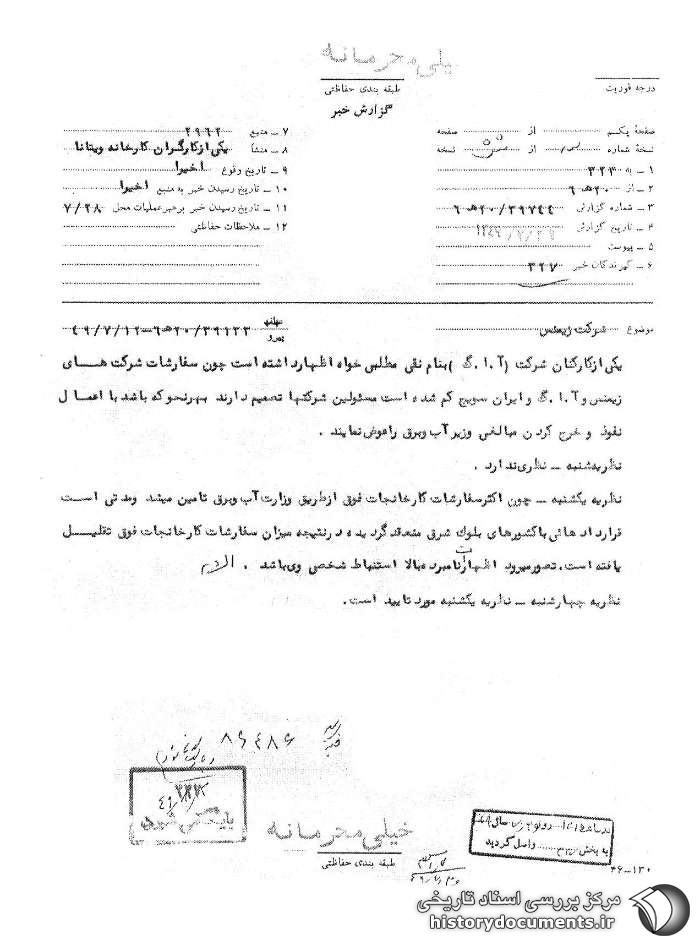 خیلی محرمانه
درجه فوریت
طبقه بندی حفاظتی
گزارش خبر
صفحهٔ یکم از صفحه
نسخهٔ شماره از نسخه
۱ ـ به ۳۲۳
۲ ـ از ۲۰ هـ ۶
۳ ـ شماره گزارش ۳۹۷۴۴/۲۰هـ۶
۴ ـ تاریخ گزارش ۱۳۴۹/۷/۲۹
۵ ـ پیوست
۶ ـ گیرندگان خبر ۳۲۷
۷ ـ منبع ۲۹۶۲
۸ ـ منشأ یکی از کارگران کارخانه ویتانا
۹ ـ تاریخ وقوع اخیرا
۱۰ ـ تاریخ رسیدن خبر به منبع اخیرا
۱۱ ـ تاریخ رسیدن خبر برهبر عملیات محل ۷/۲۸
۱۲ ـ ملاحظات حفاظتی
موضوع شرکت زیمنس
پیرو ۳۹۱۲۳/۲۰هـ۶-۴۹/۷/۱۲
یکی از کارکنان شرکت (آ.ا.گ) بنام نقی مطلبی خواه اظهار داشته است چون سفارشات شرکت های
زیمنس و آ.ا.گ و ایران سویچ کم شده است مسئولین شرکتها تصمیم دارند بهر نحو که باشد با اعمال
نفوذ و خرج کردن مبالغی وزیر آب و برق را عوض نمایند .
نظریه شنبه ـ نظری ندارد .
نظریه یکشنبه ـ چون اکثر سفارشات کارخانجات فوق از طریق وزارت آب و برق تامین میشد و مدتی است
قرارداد هائی با کشورهای بلوک شرق منعقد گردیده در نتیجه میزان سفارشات کارخانجات فوق تقلیل
یافته است. تصور میرود اظهارات نامبرده بالا استنباط شخصی وی باشد .
نظریه چهارشنبه ـ نظریه یکشنبه مورد تایید است.
۸۶۴۸۶
بایگانی شود
خیلی محرمانه
طبقه بندی حفاظتی
به بخش واصل گردید
۴۶-۱۳۰
مرکز بررسی اسناد تاریخی
historydocuments.ir